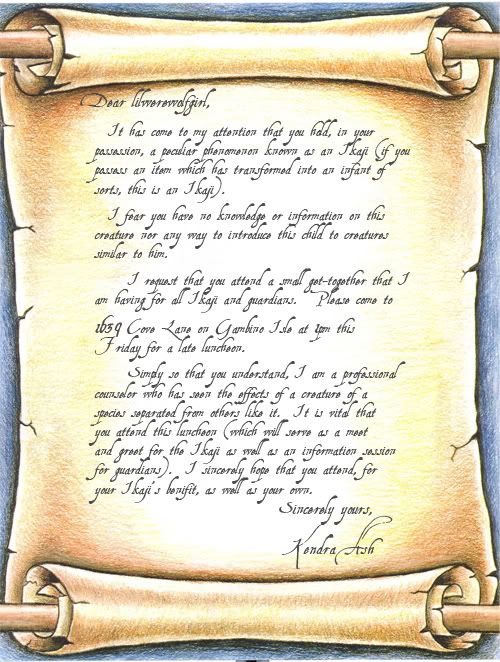 Dear lilwerewolfgirl,
It has come to my attention that you hold, in your
possession, a peculiar phenomenon known as an Ikaji (if you
possess an item which has transformed into an infant of
sorts, this is an Ikaji).
I fear you have no knowledge or information on this
creature nor any way to introduce this child to creatures
similar to him.
I request that you attend a small get-together that I
am having for all Ikaji and guardians. Please come to
1639 Cove Lane on Gambino Isle at 2pm this
Friday for a late luncheon.
Simply so that you understand, I am a professional
counselor who has seen the effects of a creature of a
species separated from others like it. It is vital that
you attend this luncheon (which will serve as a meet
and greet for the Ikaji as well as an information session
for guardians). I sincerely hope that you attend, for
your Ikaji's benifit, as well as your own.
Sincerely yours,
Kendra Ash